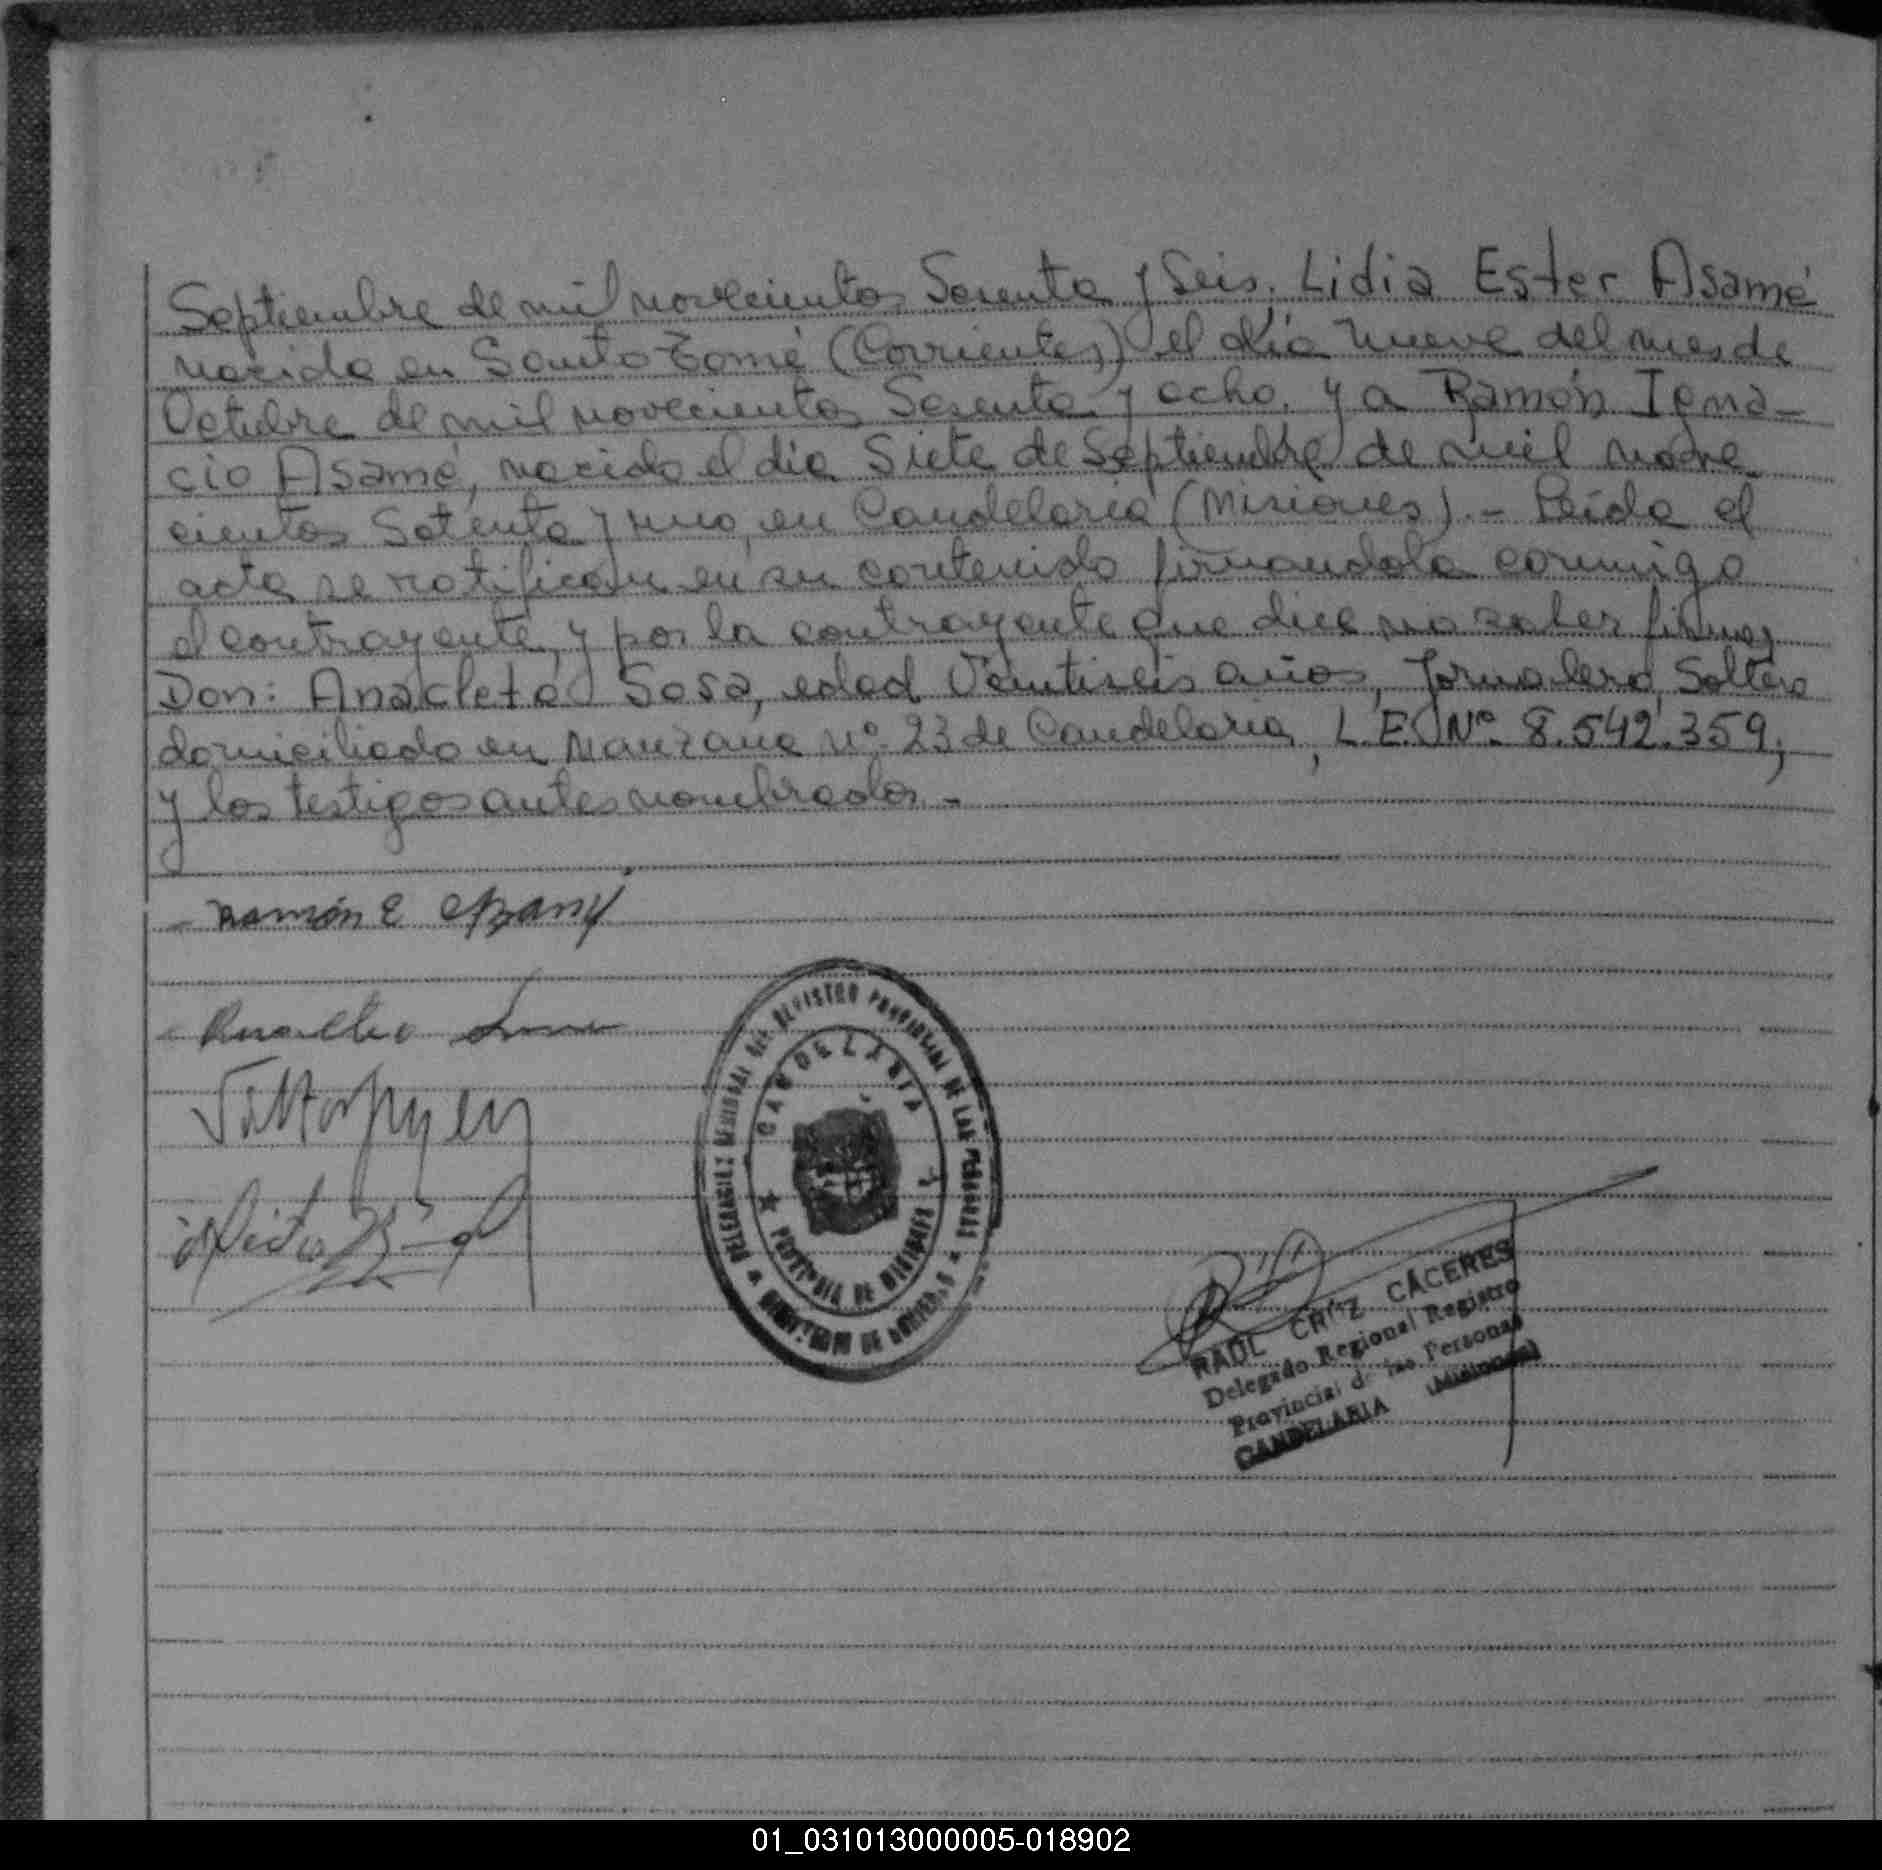 Septiembre de mil novecientos Sesenta y Seis. Lidia Ester Asamé
nacida en Santo Tomé (Corrientes) el día nueve del mes de
Octubre de mil novecientos Sesenta y ocho. y a Ramón Igna-
cio Asamé, nacido el día Siete de Septiembre de mil nove
cientos Setenta y uno, en Candelaria (Misiones).- Leída el
acta se ratifican en su contenido firmandola conmigo
el contrayente, y por la contrayente que dice no saber firmar
Don: Anacleto Sosa, edad Veintiseis años, Jornalero, Soltero
domiciliado en Manzana nº 23 de Candelaria, L.E. Nº 8.542.359,
y los testigos antes nombrados.-
Ramón E Asamé
DELEGACION REGIONAL DEL REGISTRO PROVINCIAL DE LAS PERSONAS
CANDELARIA
PROVINCIA DE MISIONES
RAUL CRUZ CACERES
Delegado Regional Registro
Provincial de las Personas
CANDELARIA (Misiones)
01_031013000005-018902